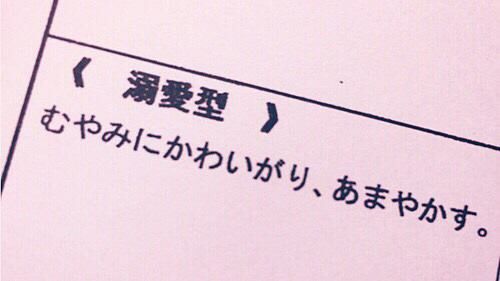 《　溺愛型　》
むやみにかわいがり、あまやかす。